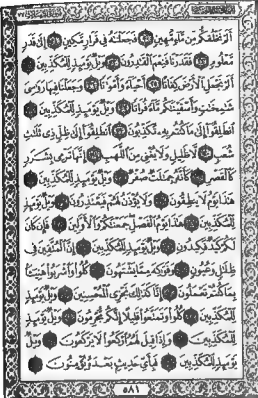 أَلَمْ نَخْلُقكُّم مِّن مَّآءٍ مَّهِينٍ فَجَعَلْنَٰهُ فِى قَرَارٍ مَّكِينٍ إِلَىٰ قَدَرٍ
مَّعْلُومٍ فَقَدَرْنَا فَنِعْمَ ٱلْقَٰدِرُونَ وَيْلٌ يَوْمَئِذٍ لِّلْمُكَذِّبِينَ
أَلَمْ نَجْعَلِ ٱلْأَرْضَ كِفَاتًا أَحْيَآءً وَأَمْوَٰتًا وَجَعَلْنَا فِيهَا رَوَٰسِىَ
شَٰمِخَٰتٍ وَأَسْقَيْنَٰكُم مَّآءً فُرَاتًا وَيْلٌ يَوْمَئِذٍ لِّلْمُكَذِّبِينَ
ٱنطَلِقُوٓا۟ إِلَىٰ مَا كُنتُم بِهِۦ تُكَذِّبُونَ ٱنطَلِقُوٓا۟ إِلَىٰ ظِلٍّ ذِى ثَلَٰثِ
شُعَبٍ لَّا ظَلِيلٍ وَلَا يُغْنِى مِنَ ٱللَّهَبِ إِنَّهَا تَرْمِى بِشَرَرٍ
كَٱلْقَصْرِ كَأَنَّهُۥ جِمَٰلَتٌ صُفْرٌ وَيْلٌ يَوْمَئِذٍ لِّلْمُكَذِّبِينَ
هَٰذَا يَوْمُ لَا يَنطِقُونَ وَلَا يُؤْذَنُ لَهُمْ فَيَعْتَذِرُونَ وَيْلٌ يَوْمَئِذٍ
لِّلْمُكَذِّبِينَ هَٰذَا يَوْمُ ٱلْفَصْلِ جَمَعْنَٰكُمْ وَٱلْأَوَّلِينَ فَإِن كَانَ
لَكُمْ كَيْدٌ فَكِيدُونِ وَيْلٌ يَوْمَئِذٍ لِّلْمُكَذِّبِينَ إِنَّ ٱلْمُتَّقِينَ فِى
ظِلَٰلٍ وَعُيُونٍ وَفَوَٰكِهَ مِمَّا يَشْتَهُونَ كُلُوا۟ وَٱشْرَبُوا۟ هَنِيٓـًٔۢا
بِمَا كُنتُمْ تَعْمَلُونَ إِنَّا كَذَٰلِكَ نَجْزِى ٱلْمُحْسِنِينَ وَيْلٌ يَوْمَئِذٍ
لِّلْمُكَذِّبِينَ كُلُوا۟ وَتَمَتَّعُوا۟ قَلِيلًا إِنَّكُم مُّجْرِمُونَ وَيْلٌ يَوْمَئِذٍ
لِّلْمُكَذِّبِينَ وَإِذَا قِيلَ لَهُمُ ٱرْكَعُوا۟ لَا يَرْكَعُونَ وَيْلٌ
يَوْمَئِذٍ لِّلْمُكَذِّبِينَ فَبِأَىِّ حَدِيثٍۭ بَعْدَهُۥ يُؤْمِنُونَ
٥٨١